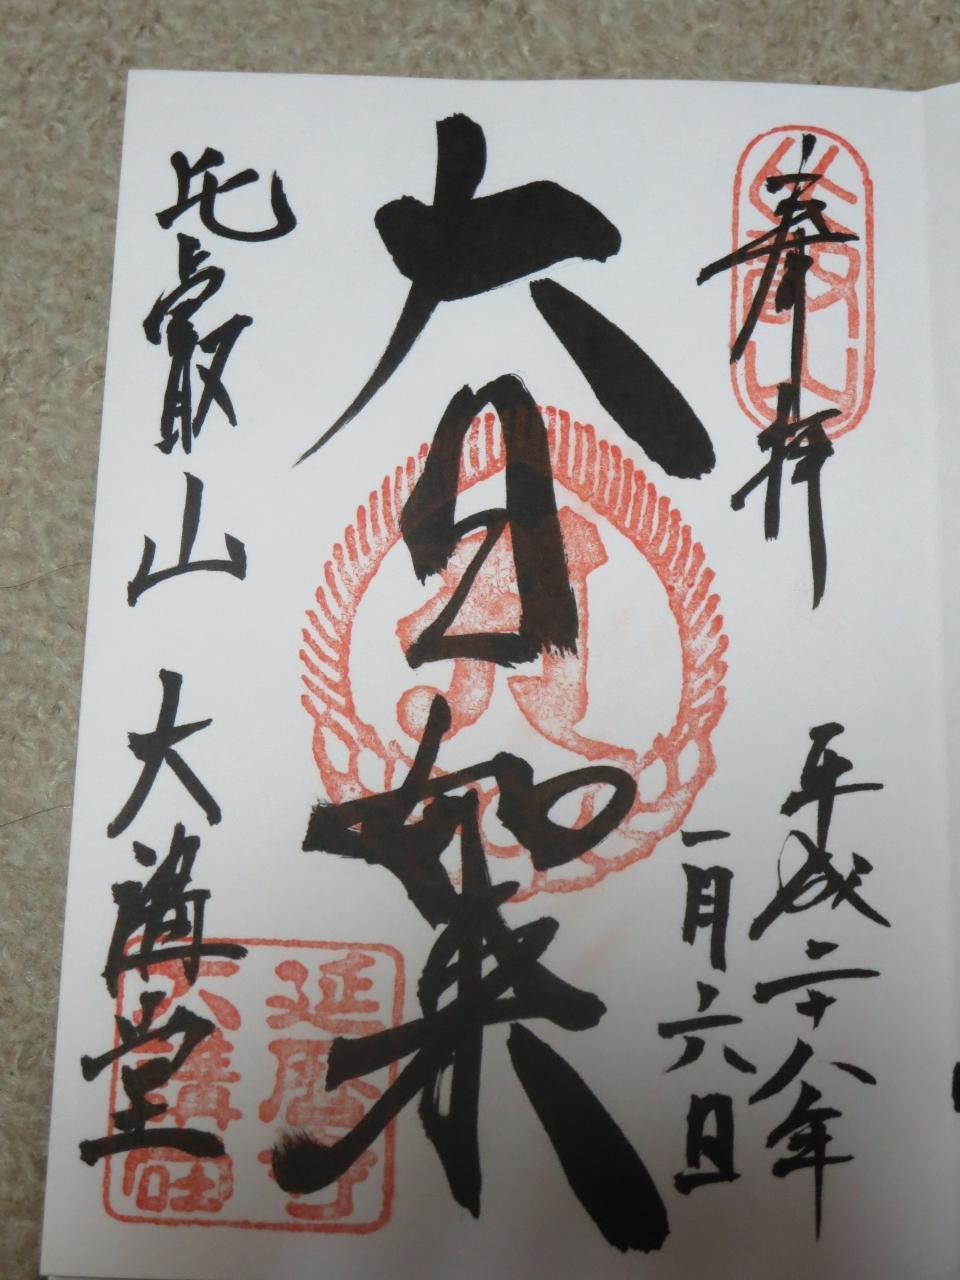 奉拝
平成二十八年
一月六日
大日如来
比叡山 大講堂
比叡山
延暦寺
大講堂